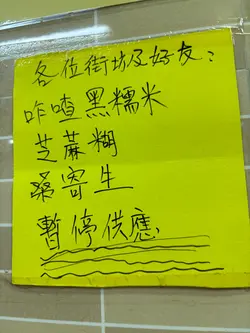 各位街坊及好友：
咋喳黑糯米
芝蔴糊
桑寄生
暫停供應